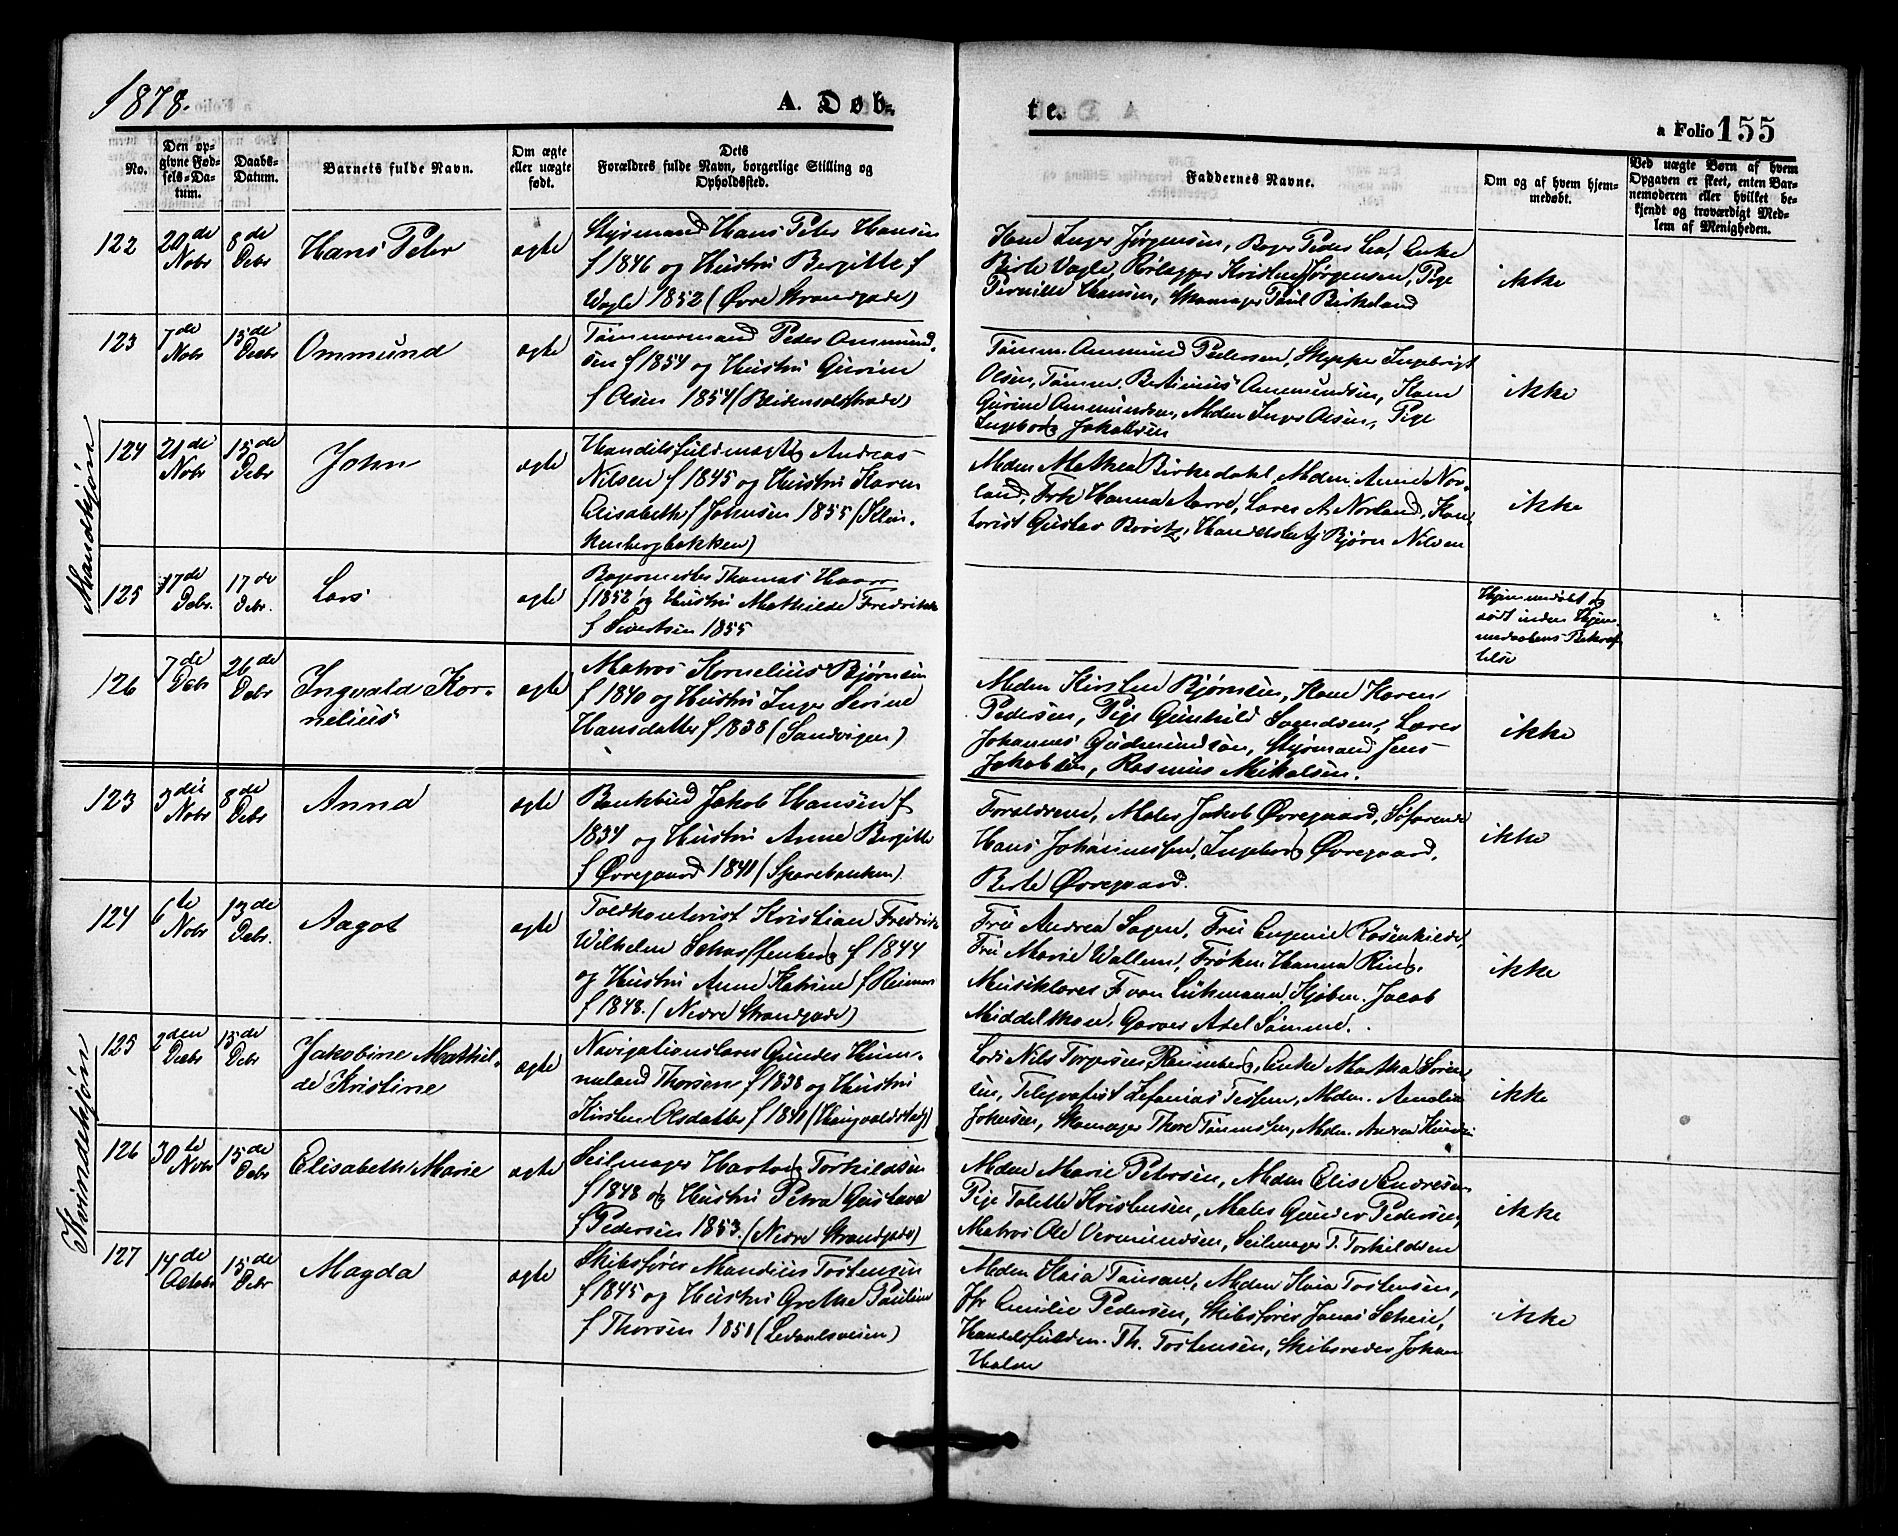 1878.
A. Døb-
te.
a Folio 155
No.
Den op-
givne Fød-
sels-Da-
tum.
Daabs-
Datum.
Barnets fulde Navn.
Om ægte
eller uægte
født.
Dets
Forældres fulde Navn, borgerlige Stilling og
Opholdssted.
Faddernes Navne.
Om og af hvem hjem-
medøbt.
Ved uægte Børn af hvem
Opgaven er skeet, enten Bar-
nemoderen eller hvilket be-
kjendt og troværdigt Med-
lem af Menigheden.
Mandkjøn
122
20de Nobr
8de Debr
Hans Peter
ægte
Styrmand Hans Peter Hansen
f 1846 og Hustru Bergitte f
Vagle 1852 (Øvre Strandgade)
Kone Inger Jørgensen, Bager Peder Lea, Enke
Birte Vagle, Jørgensen, Pige
Pernille Hansen, Skomager Paul Birkeland
ikke
123
7de Nobr
15de Debr
Ommund
ægte
Tømmermand Peder Ommund-
sen f 1854 og Hustru Gurine
f Olsen 1854
Tømm. Ommund Pedersen, Ingebrigt
Olsen, Tømm. Bertinius Ommundsen, Kone
Gurine Ommundsen, Mdm Inger Olsen, Pige
Ingeborg Jakobsen
ikke
124
21de Nobr
15de Debr
John
ægte
Handelsfuldmægtig Andreas
Nilsen f 1845 og Hustru Karen
Elisabeth f Johnsen 1855 (Klin-
kenbergbakken)
Mdm Mathea Birkedahl, Mdm Anne Nor-
land, Frk Hanna Aarre, Lærer A. Norland, Kon-
torist Gustav, Handelsbetj Bjørn Nilsen
ikke
125
17de Debr.
17de Debr.
Lars
ægte
Bagermester Thomas Haaar
f 1852 og Hustru Mathilde Fredrikke
f Sivertsen 1855
Hjemmedøbt og
død inden Hjem-
medaabens Bekræf-
telse
126
7de Debr
26de Debr
Ingvald Kor-
nelius
ægte
Matros Kornelius Bjørnsen
f 1840 og Hustru Inger Serine
Hansdatter f 1838 (Sandvigen)
Mdm Kirsten Bjørnsen, Kone Karen
Pedersen, Pige Gunhild Svendsen, Lærer
Johannes Gudmundsen, Styrmand Jens
Jakobsen, Rasmus Mikalsen.
ikke
Kvindekjøn
123
3die Nobr
8de Debr
Anna
ægte
Bankbud Jakob Hansen f
1834 og Hustru Anne Bergitte
f Øvregaard 1841 (Sparebanken).
Forældrene, Maler Jakob Øvregaard, Søfarende
Hans Johannessen, Ingeborg Øvregaard,
Berte Øvregaard.
ikke
124
6te Nobr
13de Debr.
Aagot
ægte
Toldkontorist Kristian Fredrik
Wilhelm Scharffenberg f 1844
og Hustru Anne Katrine f Reimers
f 1848. (Nedre Strandgade)
Fru Andrea Sagen, Fru Eugenie Rosenkilde,
Fru Marie Wallem, Frøken Hanna Ring,
Musiklærer F von Lühmann, Kjøbm. Jacob
Middelthon, Garver Axel Sømme.
ikke
125
2den Debr
15de Debr
Jakobine Mathil-
de Kristine
ægte
Navigationslærer Gunder Him-
meland Thorsen f 1838 og Hustru
Kirsten Olsdatter f 1841 (Kongvaldsteg)
Lods Nils Torgersen, Enke Martha Soren-
sen, Telegrafist Zefanias, Mdm. Amalia
Johnsen, Skomager Thore Tønnessen, Mdm. Andrea
ikke
126
30te Nobr
15de Debr
Elisabeth Marie
ægte
Seilmager Hartvig Torkildsen
f 1848 og Hustru Petra Gustava
f Pedersen 1853. (Nedre Strandgade)
Mdm Marie Petersen, Mdm Elise Andresen
Pige Tolette Kristensen, Maler Gunder Pedersen,
Matros Ole Vermundsen, Seilmager T. Torkildsen
ikke
127
14de Octobr
15de Debr
Magda
ægte
Skibsfører Mandius Tostensen
f 1845 og Hustru Grethe Pauline
f Thorsen 1851 (Ledaalsveien)
Mdm Maia, Mdm Maia Tostensen,
Jfr Emilie Pedersen, Skibsfører Jonas Scheie,
Handelsfuldm. Th. Tostensen, Skibsreder Johan
Holm
ikke